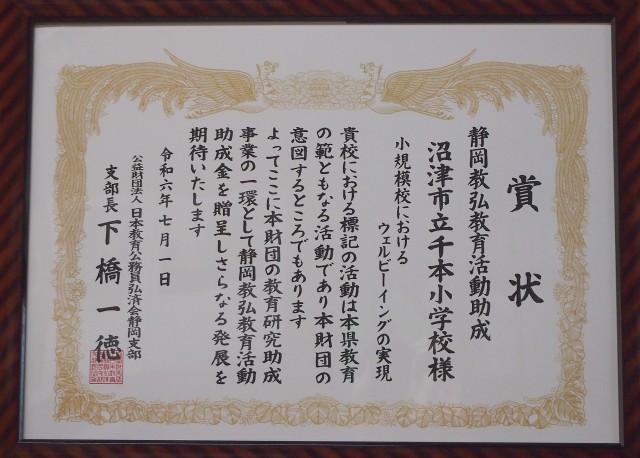 賞状
静岡教弘教育活動助成
沼津市立千本小学校様
小規模校における
ウェルビーイングの実現
貴校における標記の活動は本県教育
の範ともなる活動であり本財団の
意図するところでもあります
よってここに本財団の教育研究助成
事業の一環として静岡教弘教育活動
助成金を贈呈しさらなる発展を
期待いたします
令和六年七月一日
公益財団法人日本教育公務員弘済会静岡支部
支部長 下橋一徳